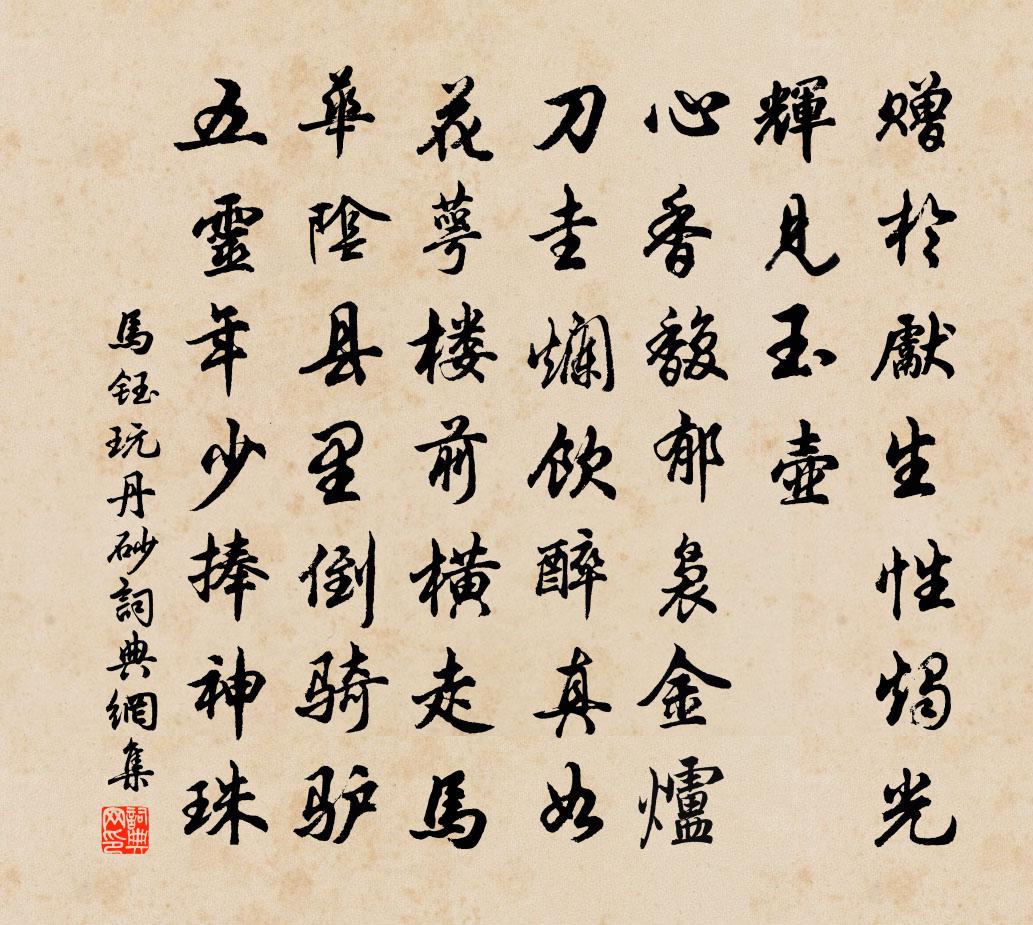 赠於獻生性燭光
輝見玉壺
心香馥郁裊金爐
刀圭爛飲醉真如
花萼楼前橫走馬
華陰县里倒骑驴
五靈年少捧神珠
馬鈺玩丹砂詞典網集
詞典網印